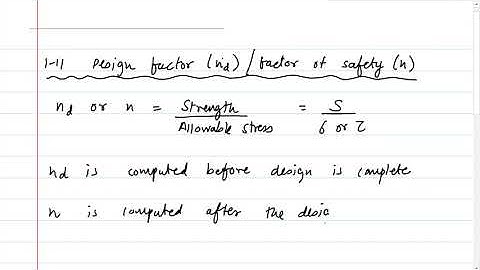 1-11 Design factor (nd) / factor of safety (n)
nd or n = Strength / Allowable stress = S / σ or τ
nd is computed before design is complete
n is computed after the desig